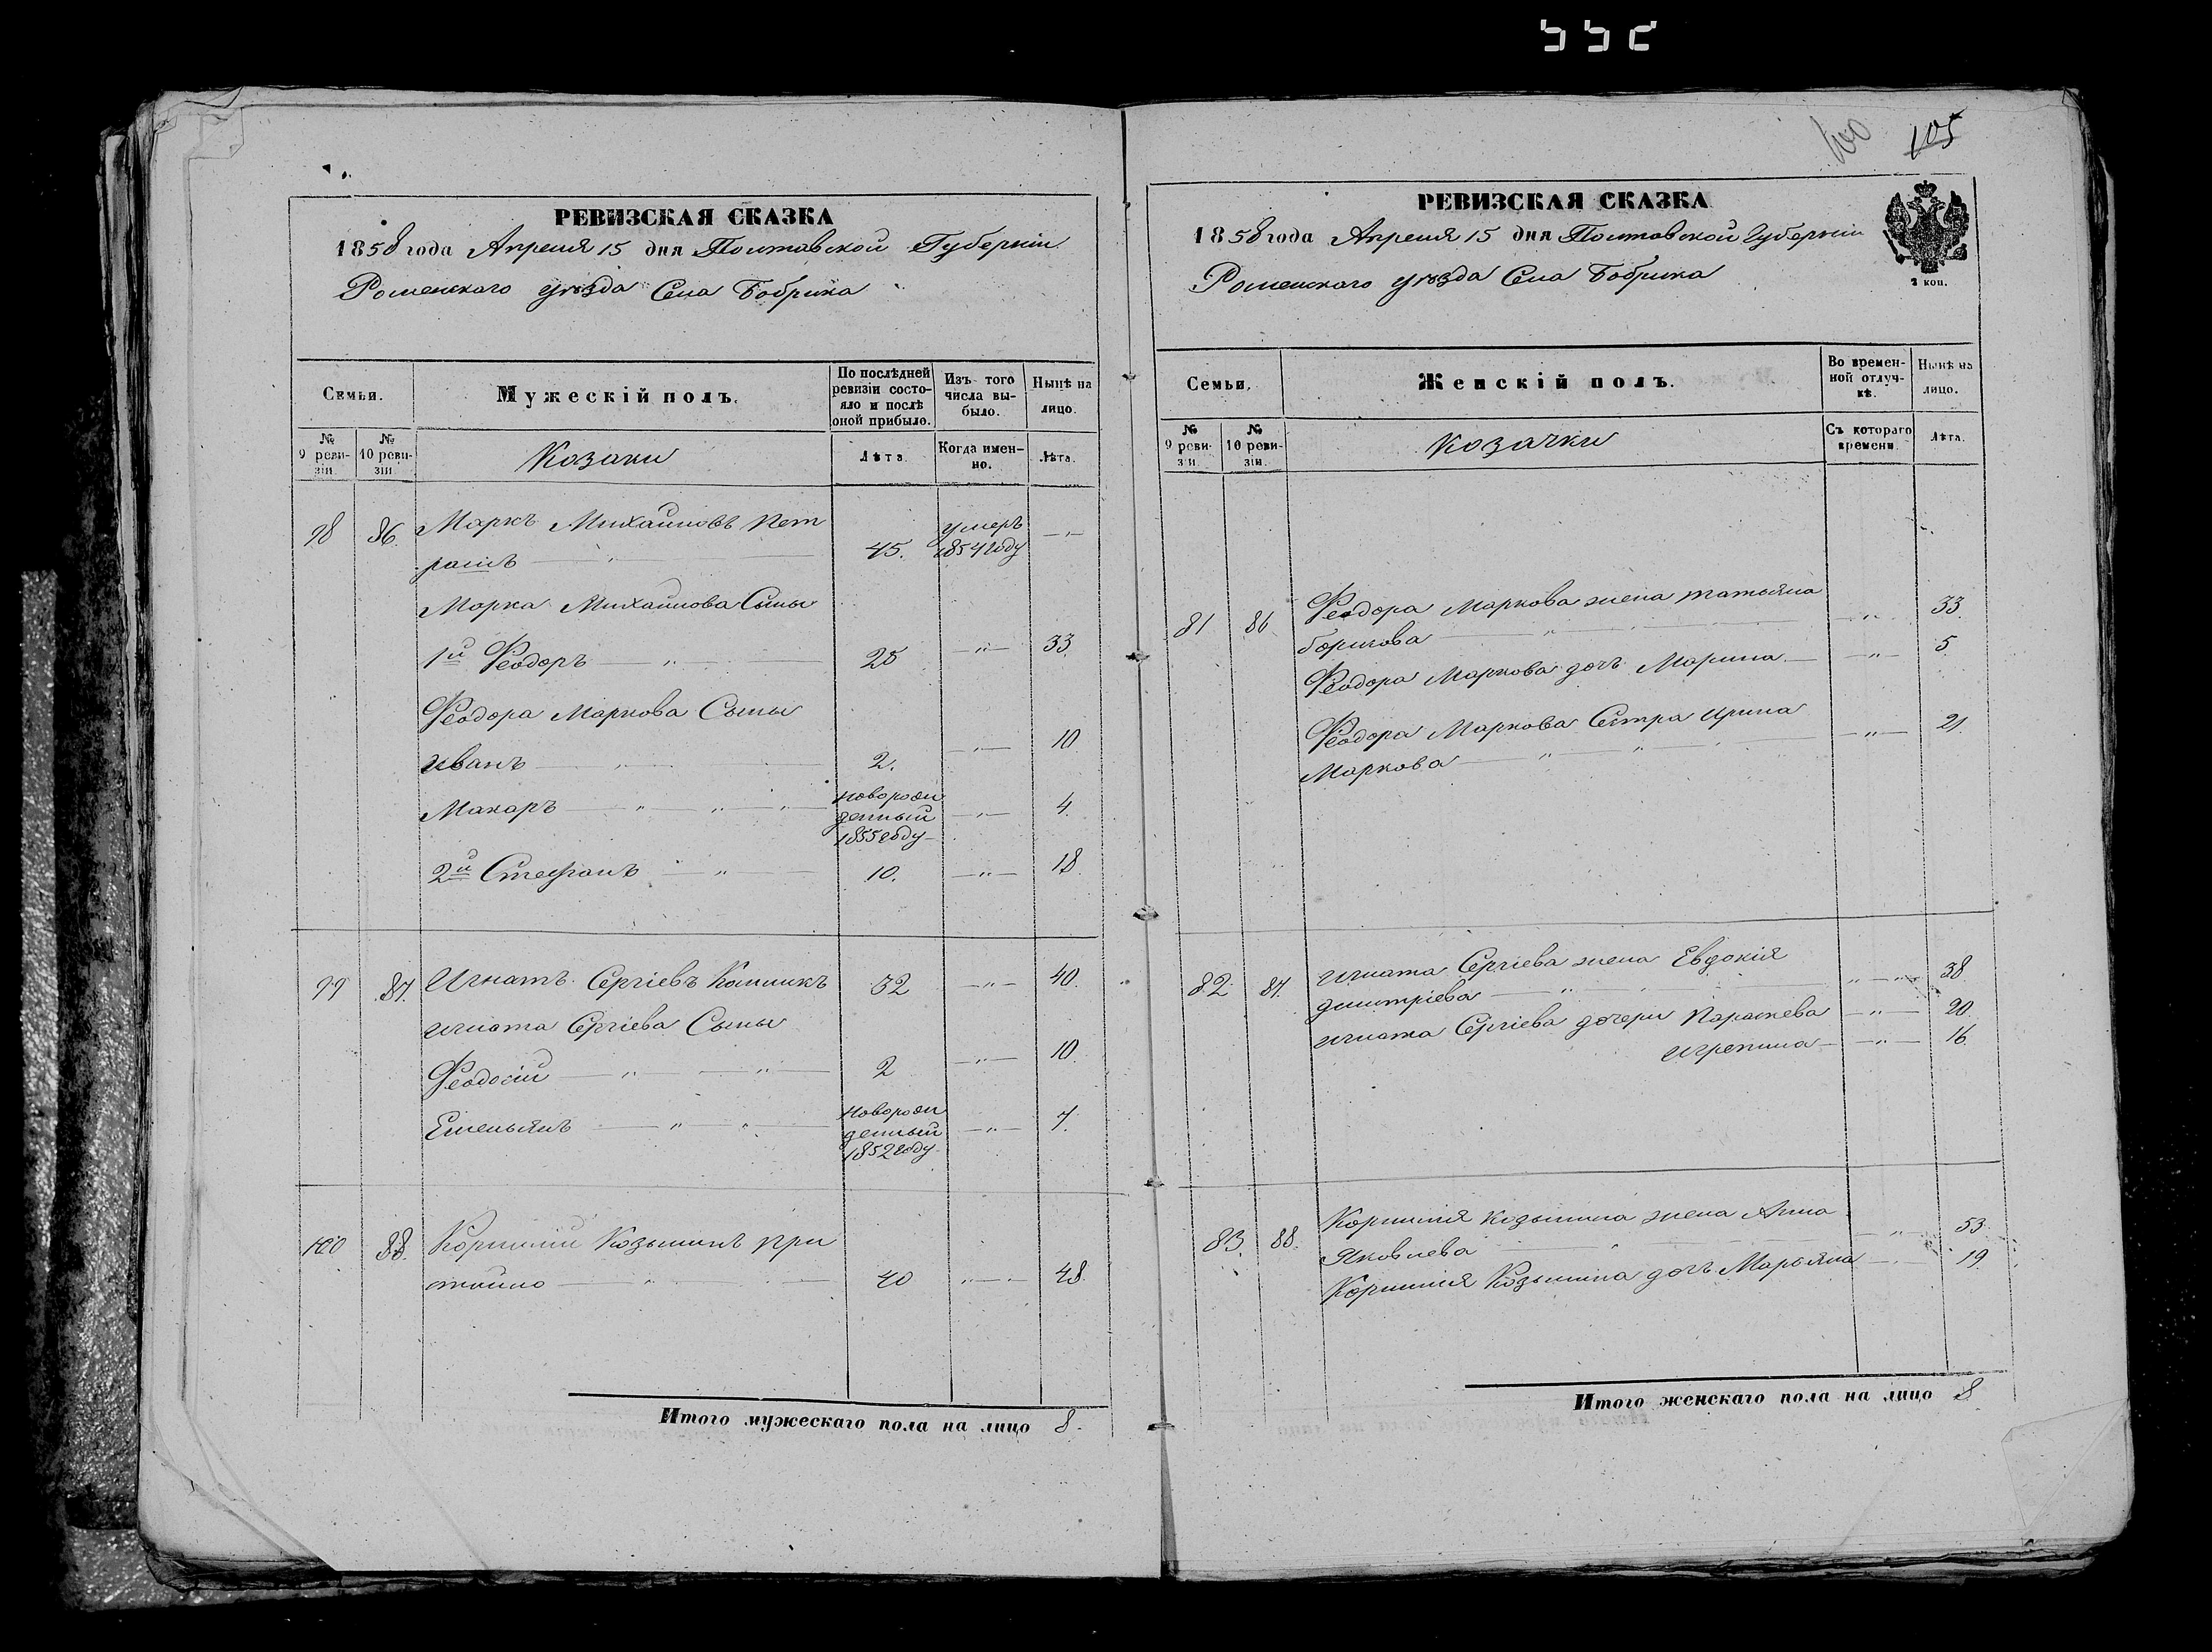 100 105
РЕВИЗСКАЯ СКАЗКА
1858 года Апреля 15 дня Полтавской Губерніи
Роменскаго уѣзда Села Бобрика
Семьи.
Мужескій полъ.
По послѣдней ревизіи состояло и послѣ оной прибыло.
Изъ того числа выбыло.
Нынѣ на лицо.
№ 9 ревизіи.
№ 10 ревизіи
Козаки
Лѣта.
Когда именно.
Лѣта.
98 86. Маркъ Михайловъ Пет
рашъ 45. умеръ 1854 году
Марка Михайлова Сыны
1й Феодоръ 25 33.
Феодора Маркова Сыны
Иванъ 2. 10
Макаръ новорожденный 1855 году 4.
2й Стефанъ 10. 18
99 87. Игнатъ Сергіевъ 32 40.
Игната Сергіева Сыны
Феодосій 2 10.
Емельянъ новорожденный 1852 году 7.
100 88. Корнилій Козьминъ При
40 48.
Итого мужескаго пола на лицо 8.
РЕВИЗСКАЯ СКАЗКА
1858 года Апреля 15 дня Полтавской Губерніи
Роменскаго уѣзда Села Бобрика
2 коп.
Семьи.
Женскій полъ.
Во временной отлучкѣ.
Нынѣ на лицо.
№ 9 ревизіи.
№ 10 ревизіи.
Козачки
Съ котораго времени.
Лѣта.
81 86 Феодора Маркова жена татьяна
33.
Феодора Маркова дочь Марина 5
Феодора Маркова Сестра Ирина
Маркова 21.
82. 87. Игната Сергіева жена Евдокія
димитріева 38
Игната Сергіева дочери Параскева 20.
16.
83. 88. Корнилія Козьмина жена Анна
Яковлева 53.
Корнилія Козьмина дочь Марьяна 19.
Итого женскаго пола на лицо 8